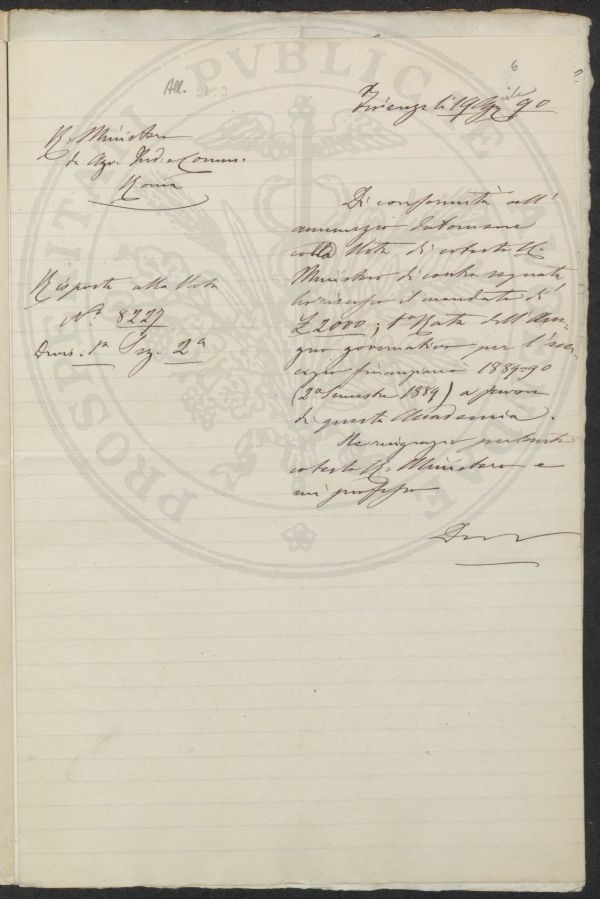 All.
6
Firenze li 19 Aprile 90
R. Ministero
di Agr. Ind. e Comm.
Roma
Di conformità all'
annunzio datomene
colla Nota di cotesto R.
Ministero di contro segnata
ho riscosso il mandato di
£ 2000; 1ª Rata dell'Asse-
gno governativo per l'eser-
cizio finanziario 1889-90
(2º Semestre 1889) a favore
di questa Accademia.
Ne ringrazio pertanto
cotesto R. Ministero e
mi professo
Risposta alla Nota
Nº 8227
Divis. 1ª Sez. 2ª
PROSPERITATI PUBLICAE